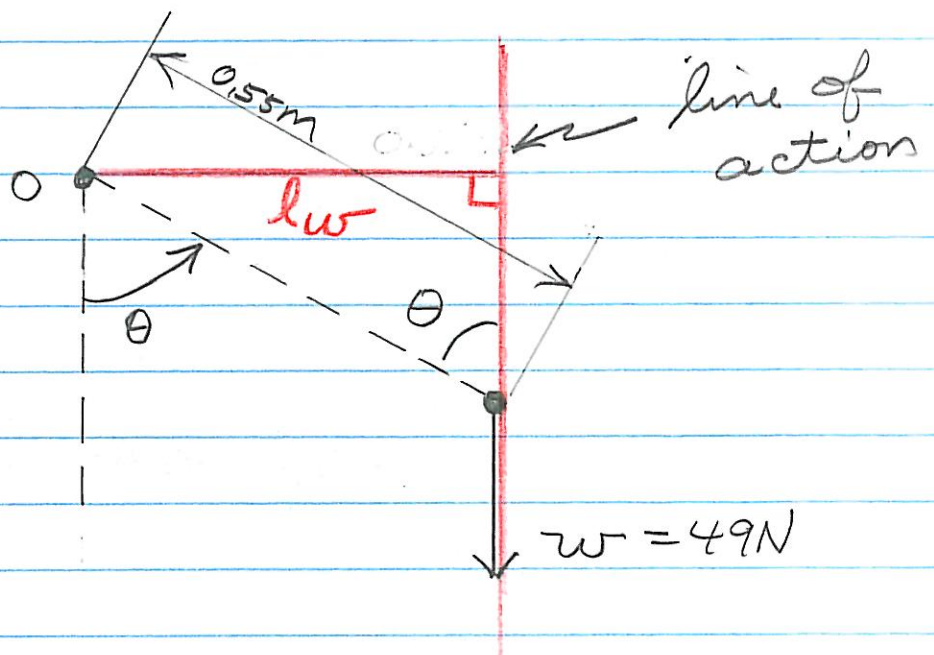 0.55m
line of
action
O
lw
θ
θ
w = 49N